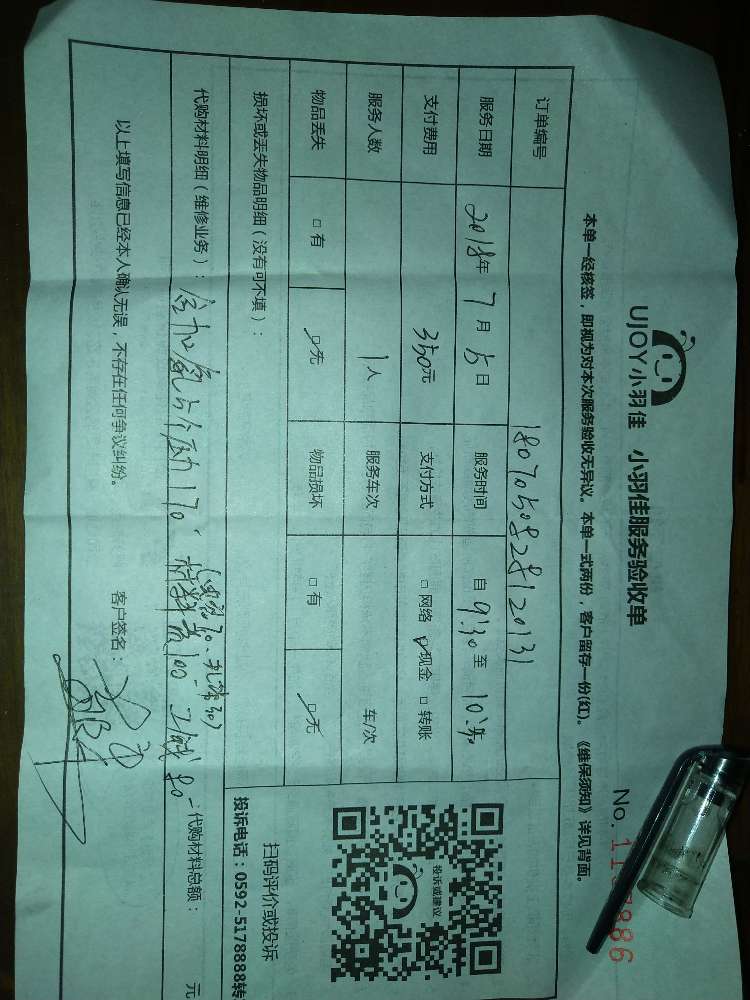 UJOY小羽佳 小羽佳服务验收单
No.
本单一经核签，即视为对本次服务验收无异议。本单一式两份，客户留存一份(红)。《维保须知》详见背面。
订单编号 1807050828120131
服务日期 2018年 7月 5日 服务时间 自 9:30 至
支付费用 350元 支付方式 □网络 ☑现金 □转账
服务人数 1人 服务车次 车/次
物品丢失 □有 ☑无 物品损坏 □有 ☑无
损坏或丢失物品明细（没有可不填）：
代购材料明细（维修业务）： 空加氟 170 材料费100 工钱80 代购材料总额： 元
以上填写信息已经本人确认无误，不存在任何争议纠纷。 客户签名：
投诉或建议
扫码评价或投诉
投诉电话：0592-5178888转